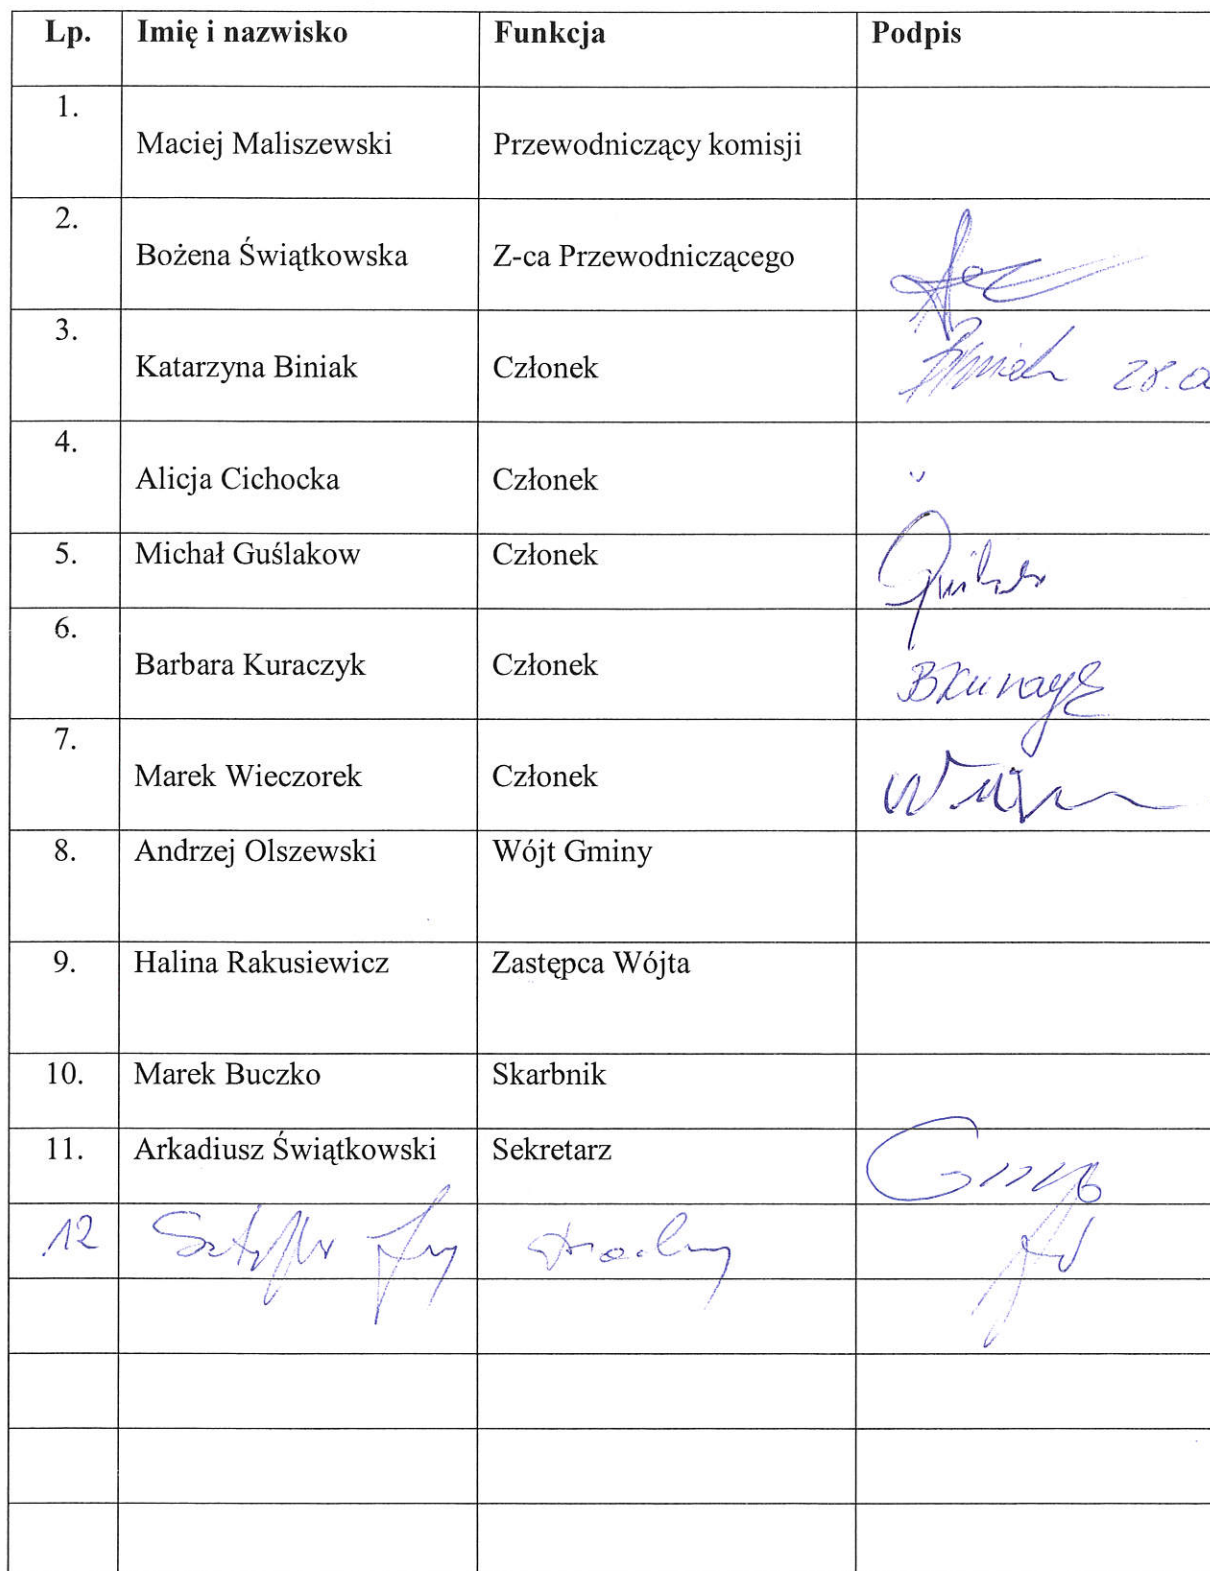 Lp. Imię i nazwisko Funkcja Podpis
1. Maciej Maliszewski Przewodniczący komisji
2. Bożena Świątkowska Z-ca Przewodniczącego
3. Katarzyna Biniak Członek 28.0
4. Alicja Cichocka Członek
5. Michał Guślakow Członek
6. Barbara Kuraczyk Członek
7. Marek Wieczorek Członek
8. Andrzej Olszewski Wójt Gminy
9. Halina Rakusiewicz Zastępca Wójta
10. Marek Buczko Skarbnik
11. Arkadiusz Świątkowski Sekretarz
12